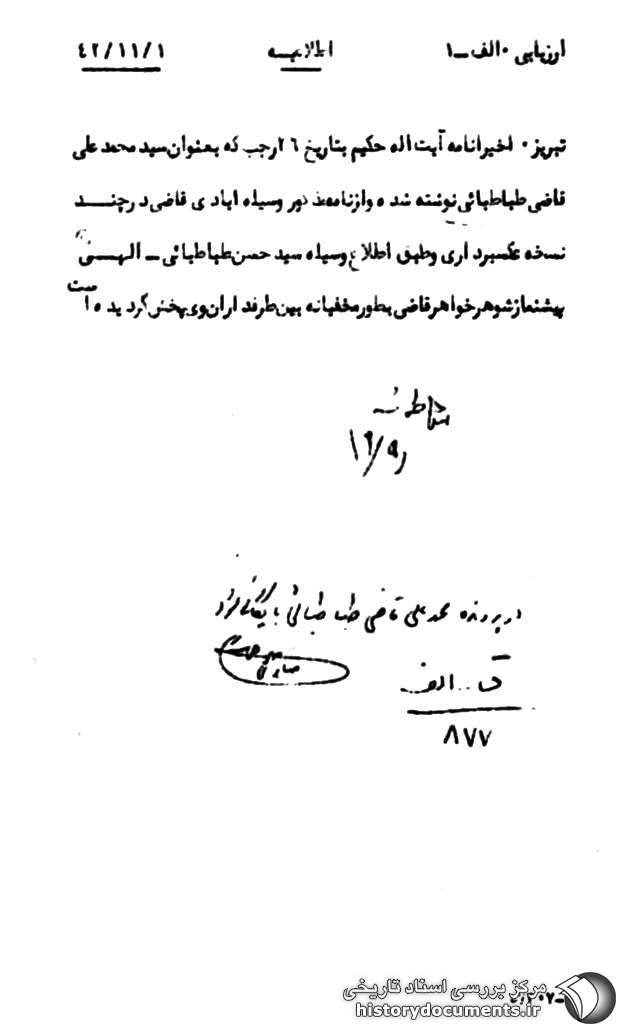 ارزیابی ۰ الف ــ ۱ اطلاعیه ۴۲/۱۱/۱
تبریز ۰ اخیرا نامه آیت اله حکیم بتاریخ ۲۶ رجب که بعنوان سید محمد علی
قاضی طباطبائی نوشته شده و از نامه مذکور وسیله ایادی قاضی در چند
نسخه عکسبرداری و طبق اطلاع وسیله سید حسن طباطبائی ــ الهی
پیشنماز شوهر خواهر قاضی بطور مخفیانه بین طرفداران وی پخش گردیده است
در پرونده محمد علی قاضی طباطبائی بایگانی گردد
ق ــ الف
۸۷۷
مرکز بررسی اسناد تاریخی
historydocuments.ir